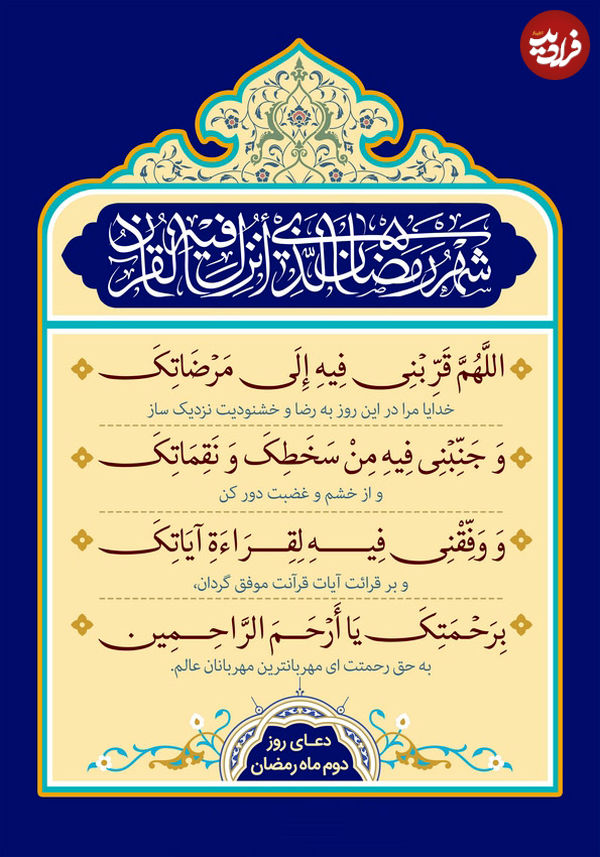 فرادید
اخبار
شَهْرُ رَمَضَانَ الَّذِي أُنْزِلَ فِيهِ الْقُرْآنُ
اللَّهُمَّ قَرِّبْنِی فِیهِ إِلَی مَرْضَاتِکَ
خدایا مرا در این روز به رضا و خشنودیت نزدیک ساز
وَ جَنِّبْنِی فِیهِ مِنْ سَخَطِکَ وَ نَقِمَاتِکَ
و از خشم و غضبت دور کن
وَ وَفِّقْنِی فِیهِ لِقِرَاءَةِ آیَاتِکَ
و بر قرائت آیات قرآنت موفق گردان،
بِرَحْمَتِکَ یَا أَرْحَمَ الرَّاحِمِین
به حق رحمتت ای مهربانترین مهربانان عالم.
دعـای روز
دوم ماه رمضان